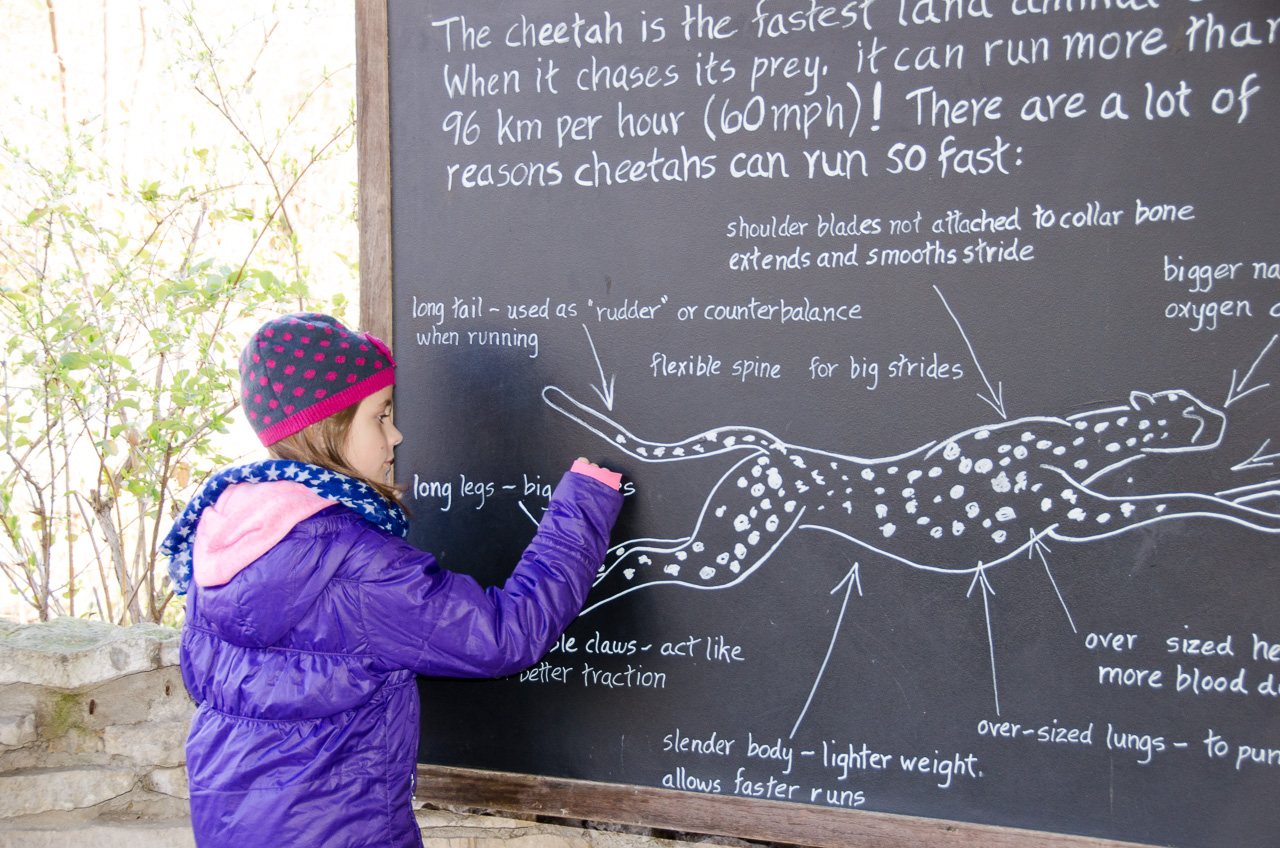 The cheetah is the fastest land animal
When it chases its prey, it can run more than
96 km per hour (60mph)! There are a lot of
reasons cheetahs can run so fast:
shoulder blades not attached to collar bone
extends and smooths stride
bigger
oxygen
long tail - used as "rudder" or counterbalance
when running
flexible spine for big strides
long legs - big
claws - act like
better traction
over sized
more blood
over-sized lungs - to
slender body - lighter weight.
allows faster runs